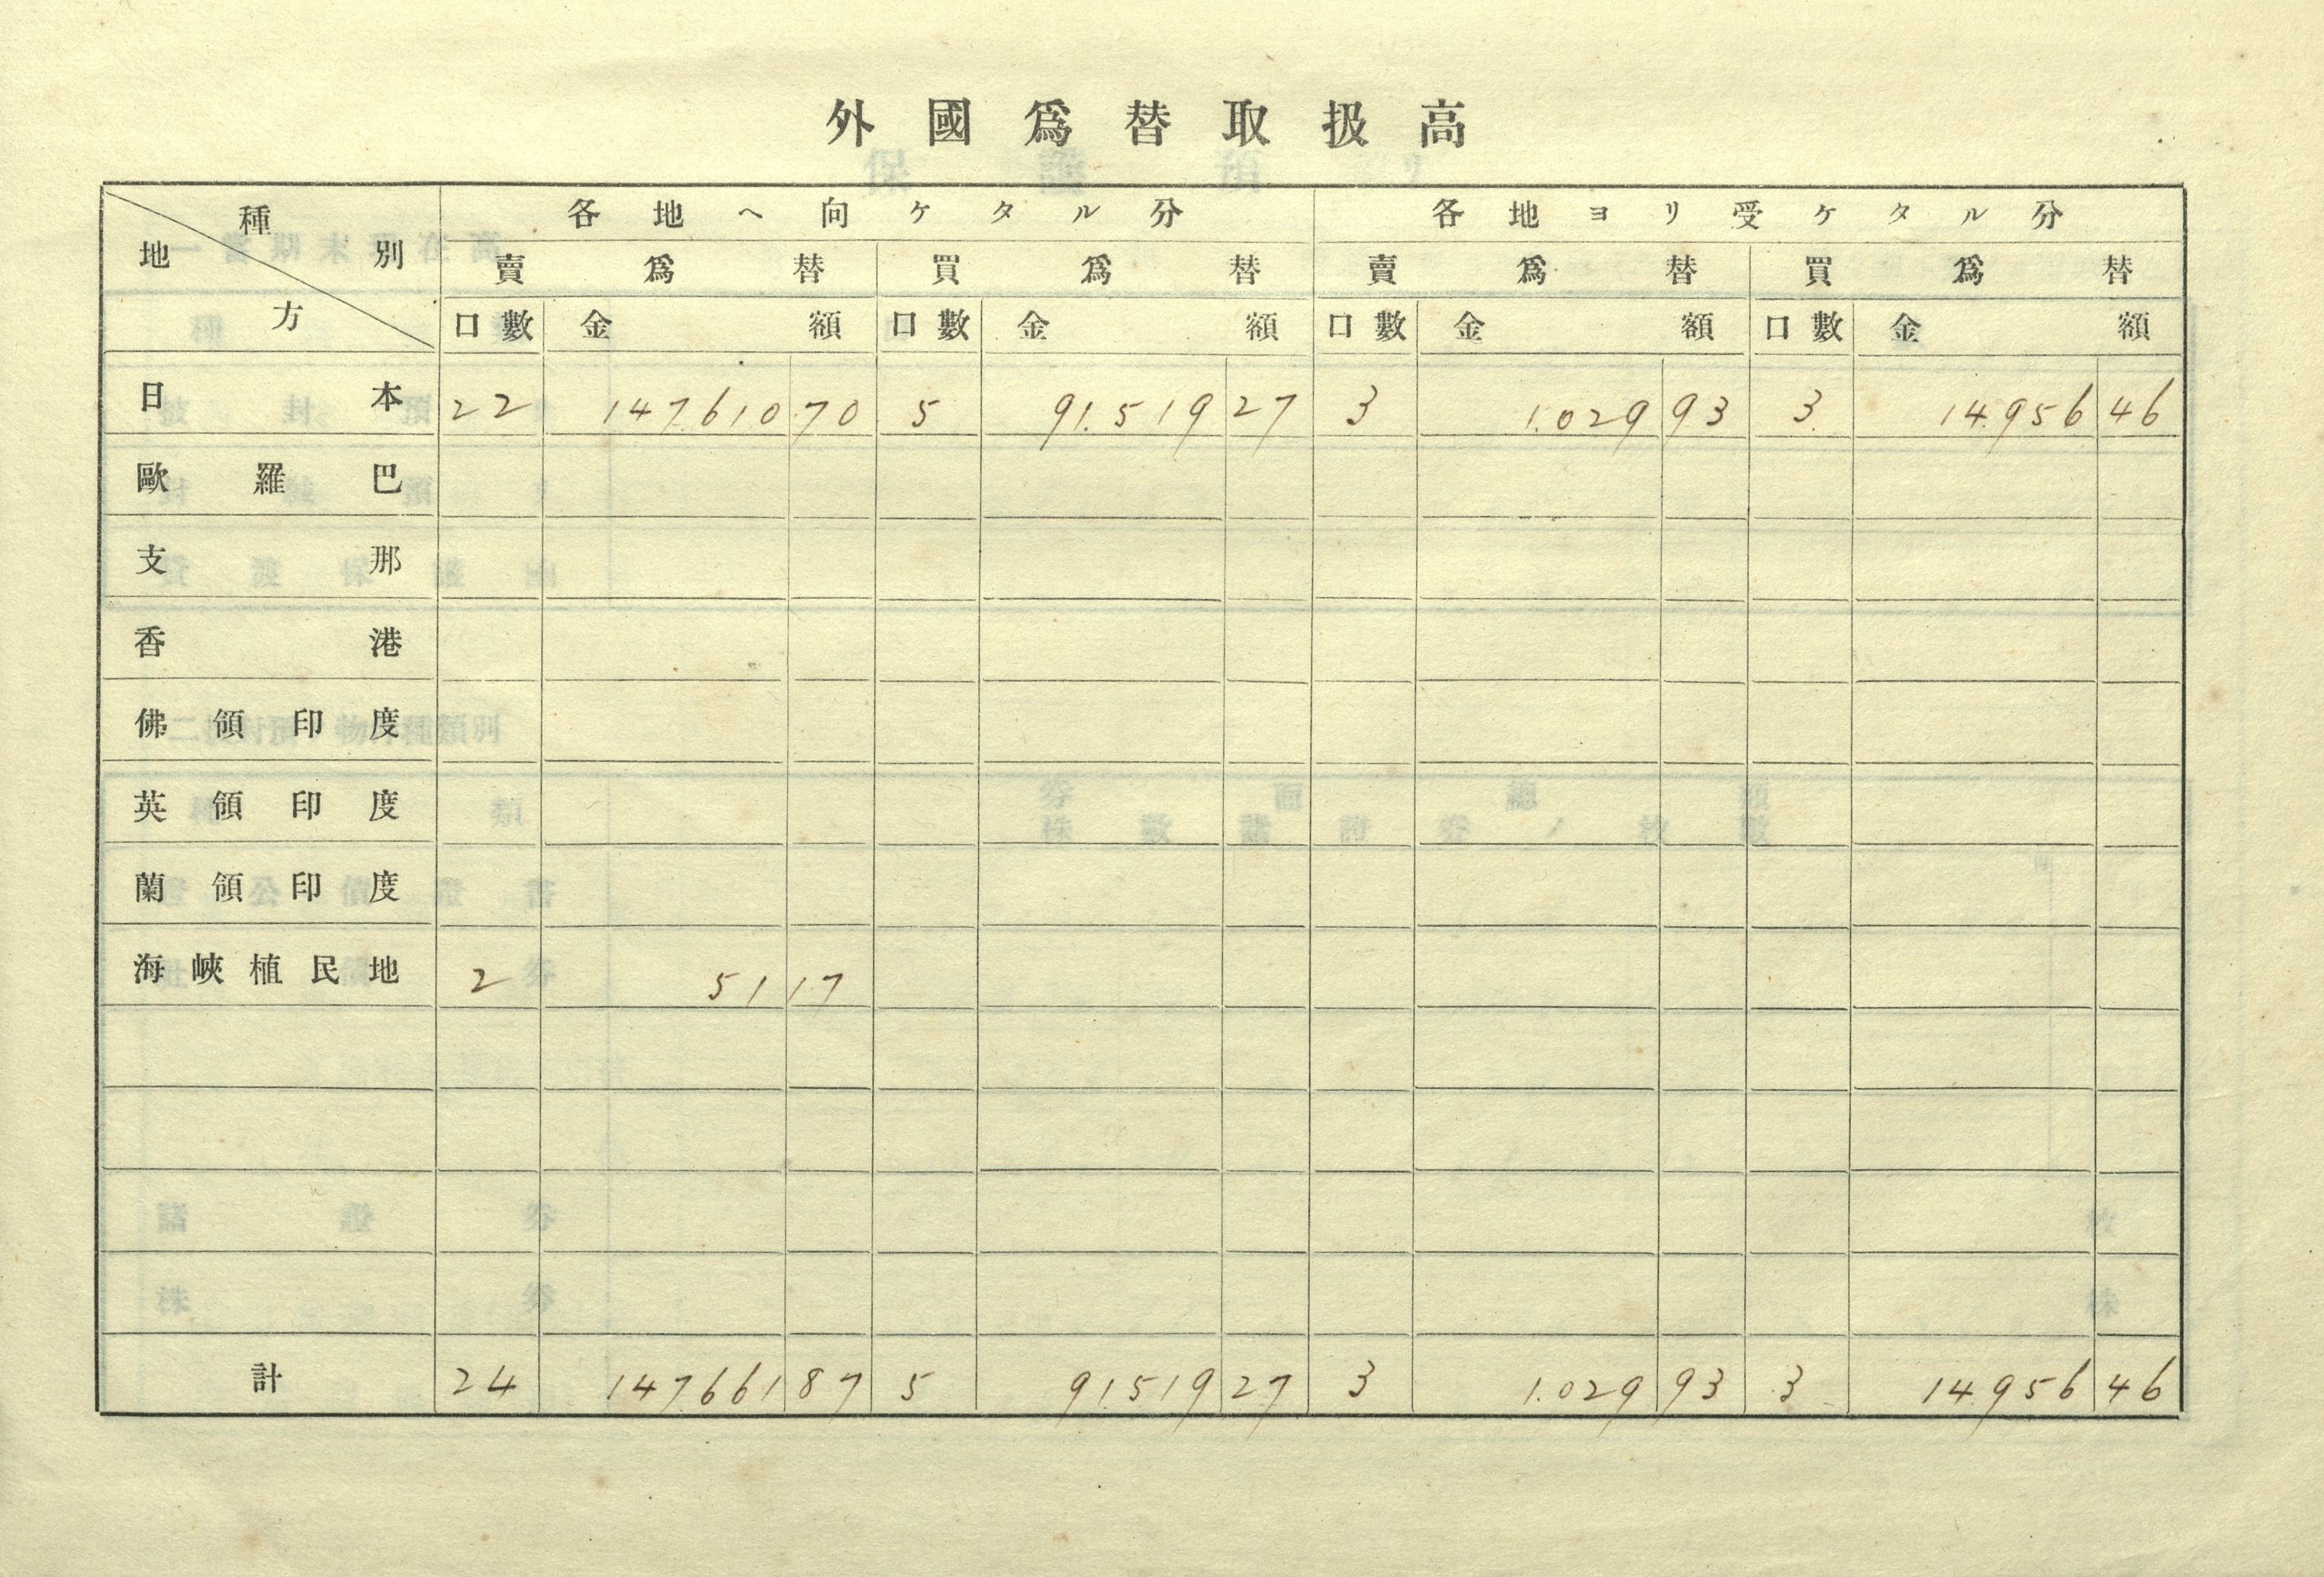 外國爲替取扱高
種別 地方 各地ヘ向ケタル分 各地ヨリ受ケタル分
賣爲替 買爲替 賣爲替 買爲替
口數 金額 口數 金額 口數 金額 口數 金額
日本 22 147,610 70 5 91,519 27 3 1,029 93 3 14,956 46
歐羅巴
支那
香港
佛領印度
英領印度
蘭領印度
海峽植民地 2 51 17
計 24 147,661 87 5 91,519 27 3 1,029 93 3 14,956 46